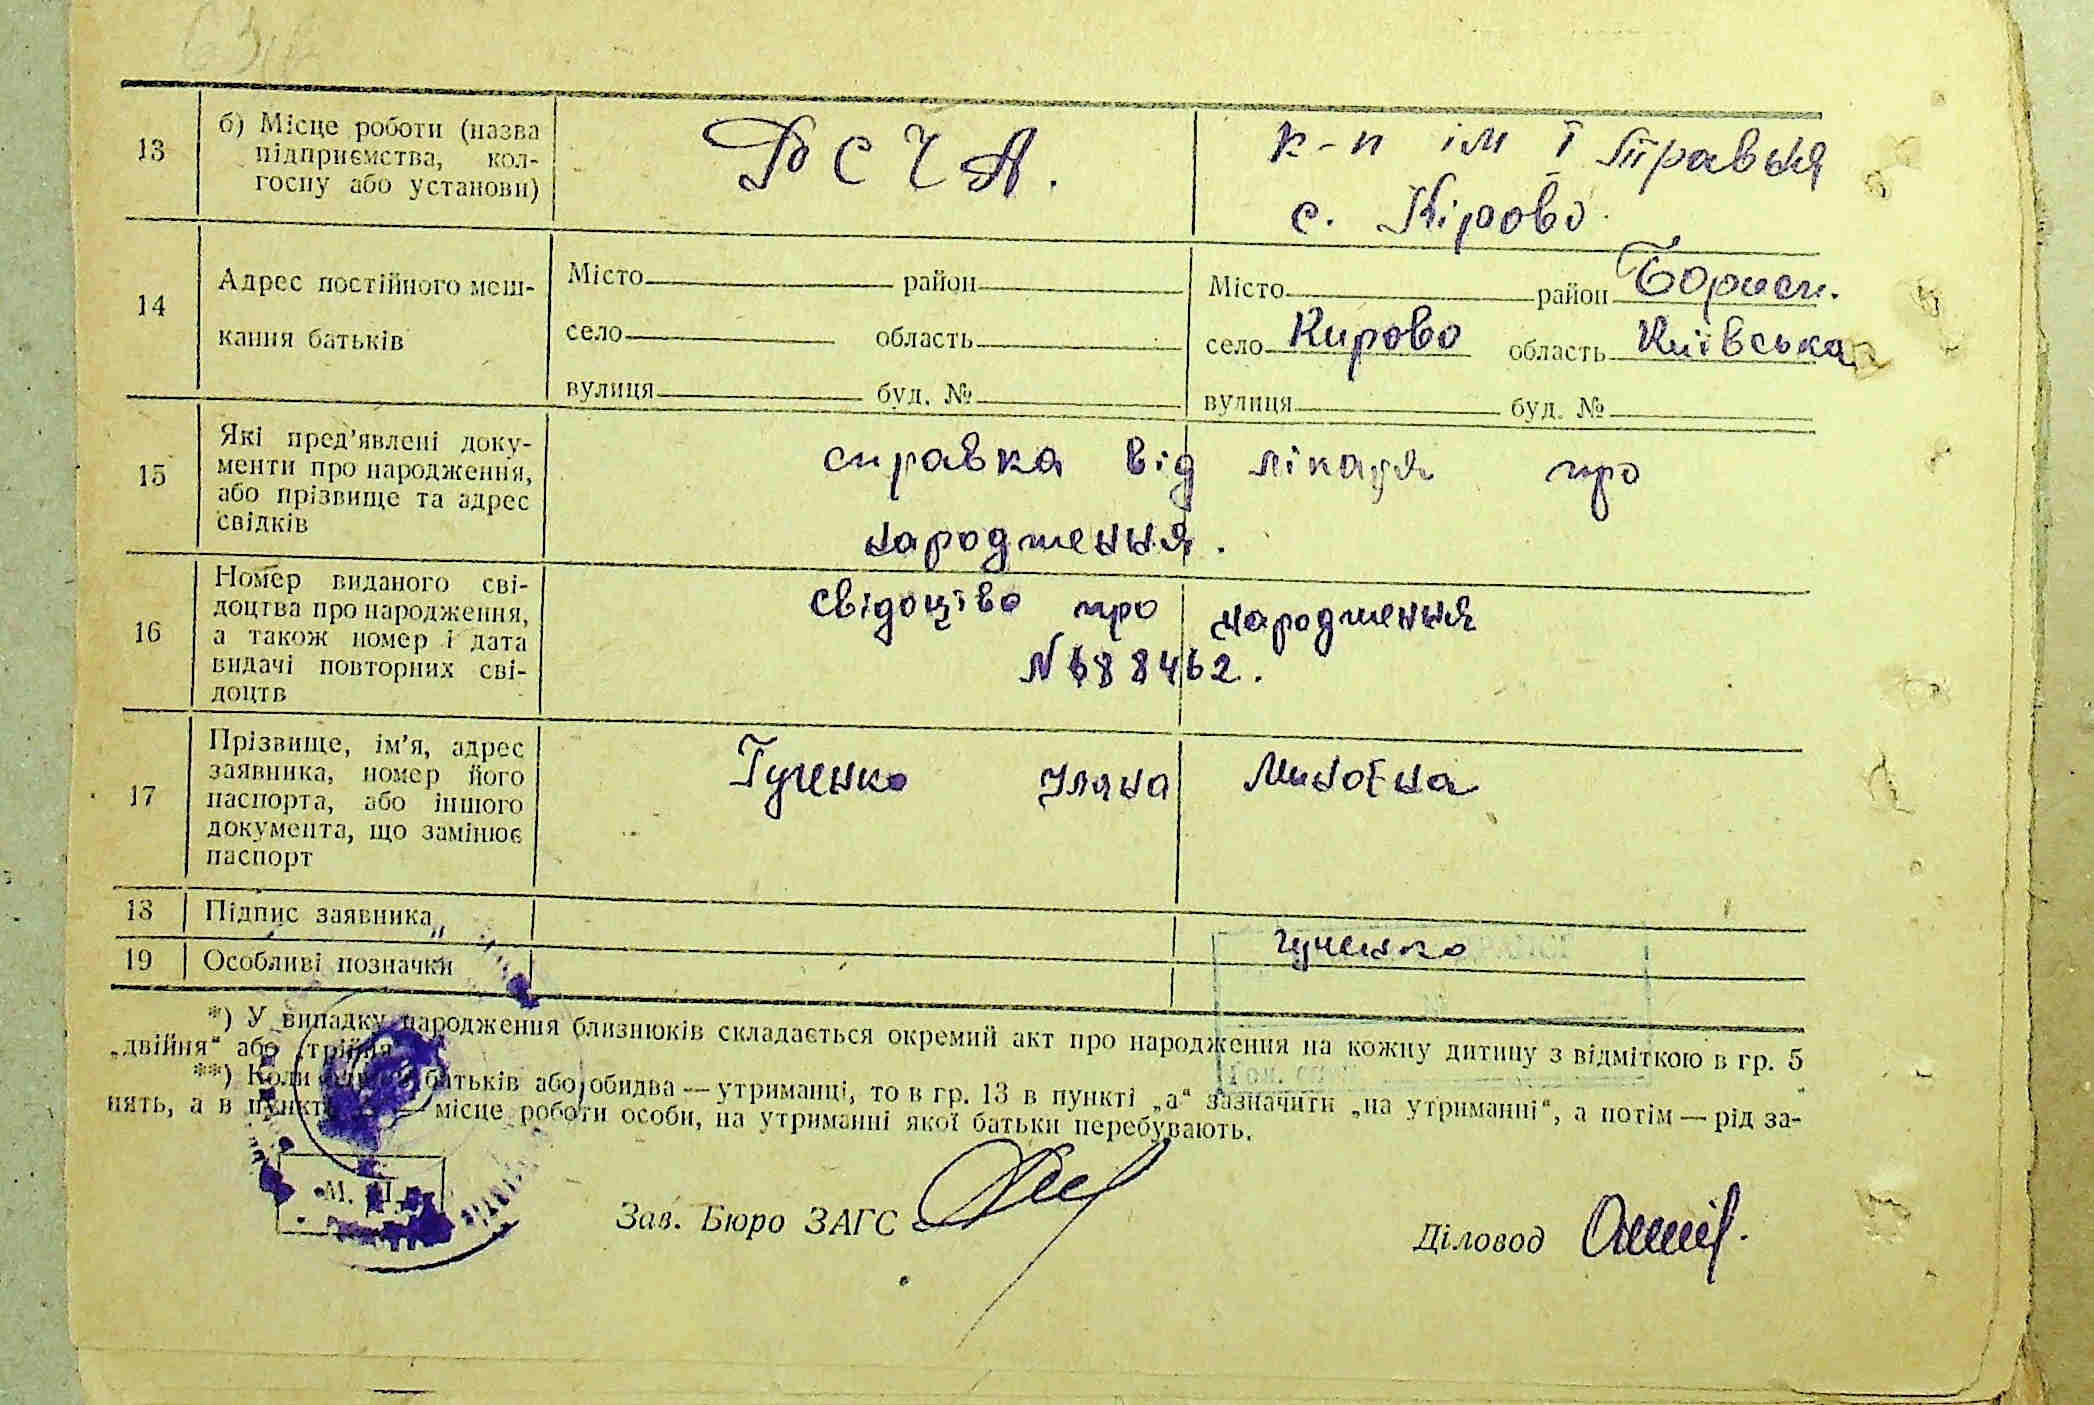 13
б) Місце роботи (назва
підприємства, кол-
госпу або установи)
РСЧА.
к-п ім І Травня
с. Кірово
14
Адрес постійного меш-
кання батьків
Місто район
село область
вулиця буд. №
Місто район Борисп.
село Кирово область Київська
вулиця буд. №
15
Які пред’явлені доку-
менти про народження,
або прізвище та адрес
свідків
справка від лікаря про
народження.
16
Номер виданого сві-
доцтва про народження,
а також номер і дата
видачі повторних сві-
доцтв
свідоцтво про народження
N 688462.
17
Прізвище, ім’я, адрес
заявника, номер його
паспорта, або іншого
документа, що замінює
паспорт
Гученко Уляна Миноєна
18 Підпис заявника
гученко
19 Особливі позначки
*) У випадку народження близнюків складається окремий акт про народження на кожну дитину з відміткою в гр. 5
„двійня“ або „трійня
**) Коли батьків або обидва — утриманці, то в гр. 13 в пункті „а“ зазначити „на утриманні“, а потім — рід за-
нять, а в пункті — місце роботи особи, на утриманні якої батьки перебувають.
М. П.
Зав. Бюро ЗАГС
Діловод